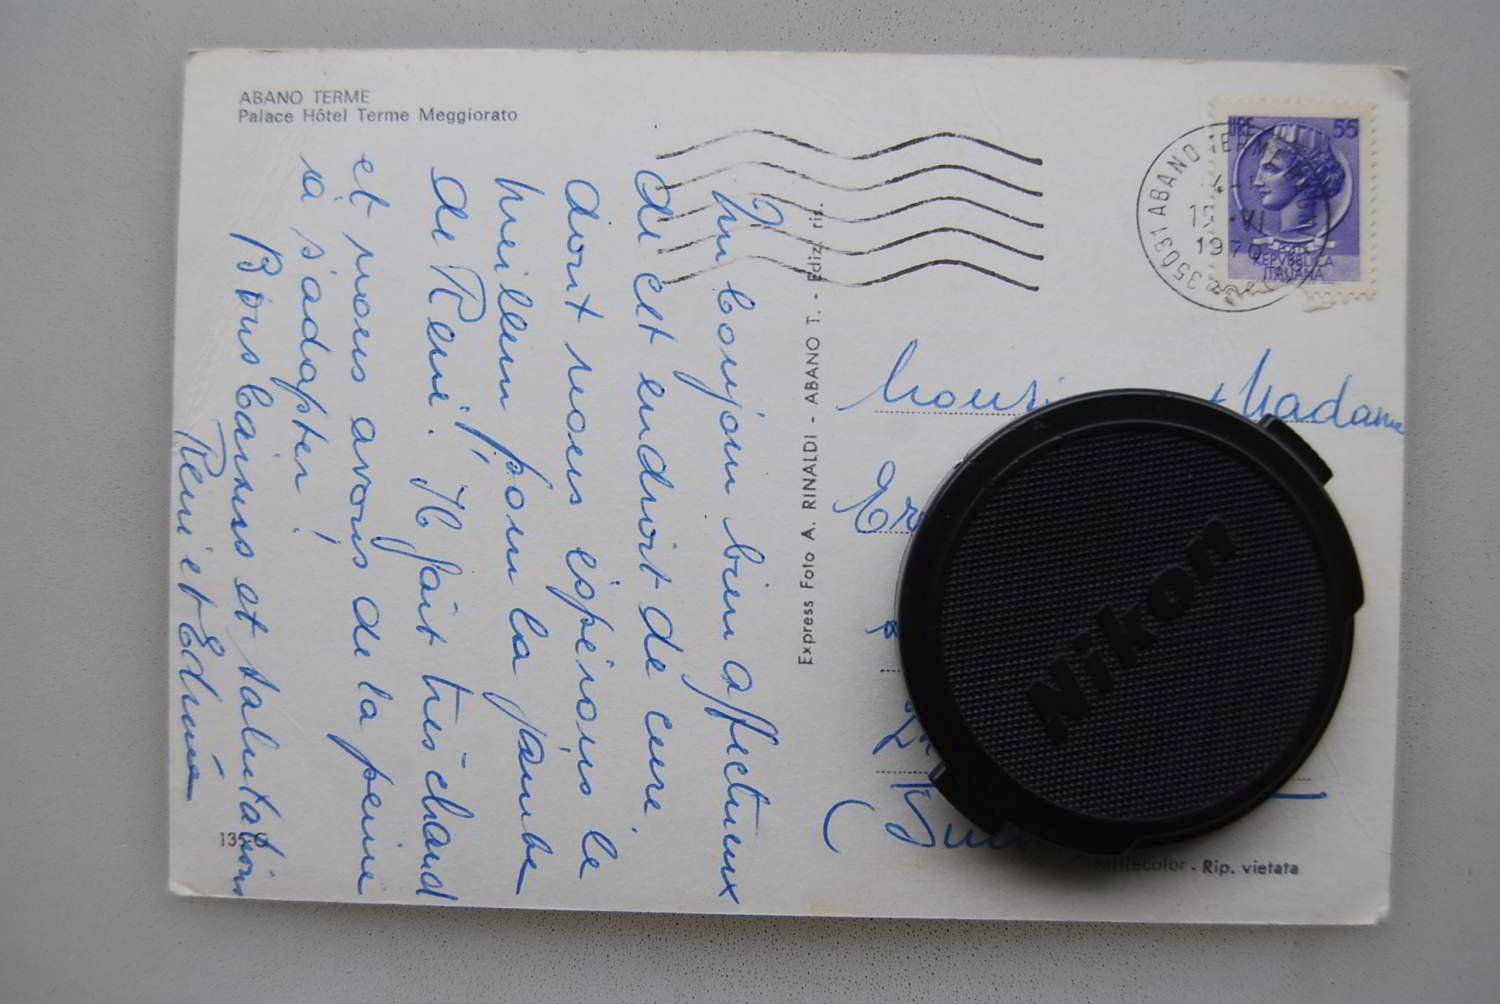 ABANO TERME
Palace Hôtel Terme Meggiorato
Un bonjour bien affectueux
de cet endroit de cure
dont nous espérons le
meilleur pour la jambe
de René. Il fait très chaud
et nous avons de la peine
à s'adapter!
Bons baisers et salutations
René et Edmée
135-G
Express Foto A. RINALDI - ABANO T. - Ediz. ris.
35031 ABANO TERME
VI
1970
LIRE 55
POSTE
REPVBBLICA
ITALIANA
Madame
Nikon
- Rip. vietata